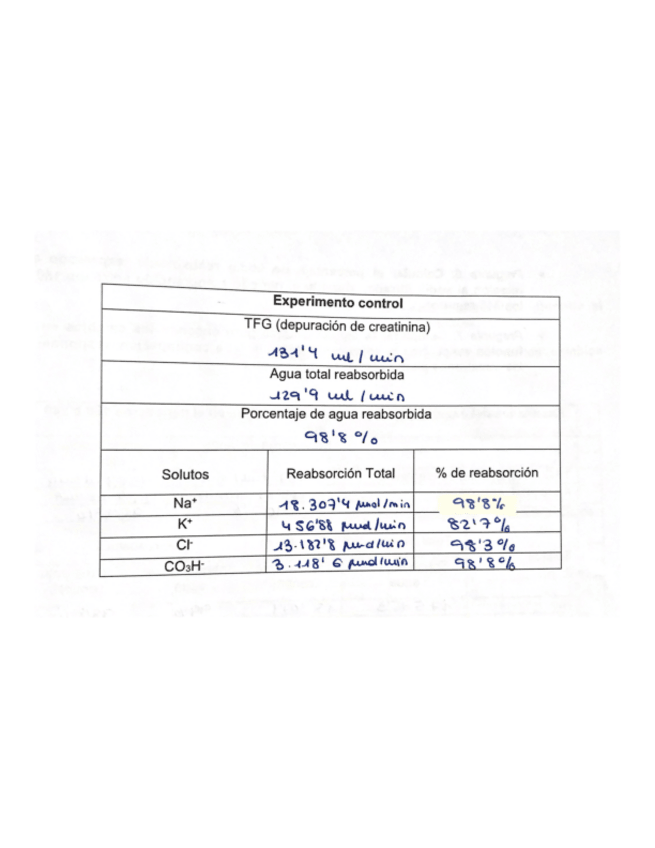 Experimento control
TFG (depuración de creatinina)
131'4 ml / min
Agua total reabsorbida
129'9 ml / min
Porcentaje de agua reabsorbida
98'8 %
Solutos Reabsorción Total % de reabsorción
Na⁺ 18.307'4 µmol/min 98'8%
K⁺ 456'88 µmol/min 82'7%
Cl⁻ 13.182'8 µmol/min 98'3%
CO₃H⁻ 3.118'6 µmol/min 98'8%